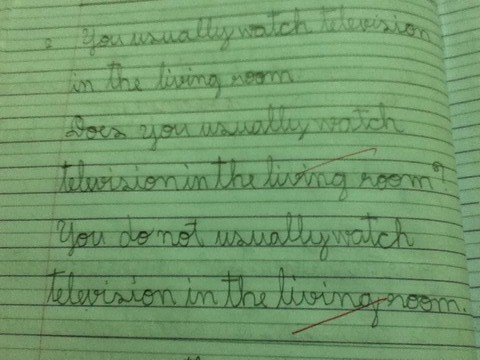 You usually watch television
in the living room
Does you usually watch
television in the living room?
You do not usually watch
television in the living room.